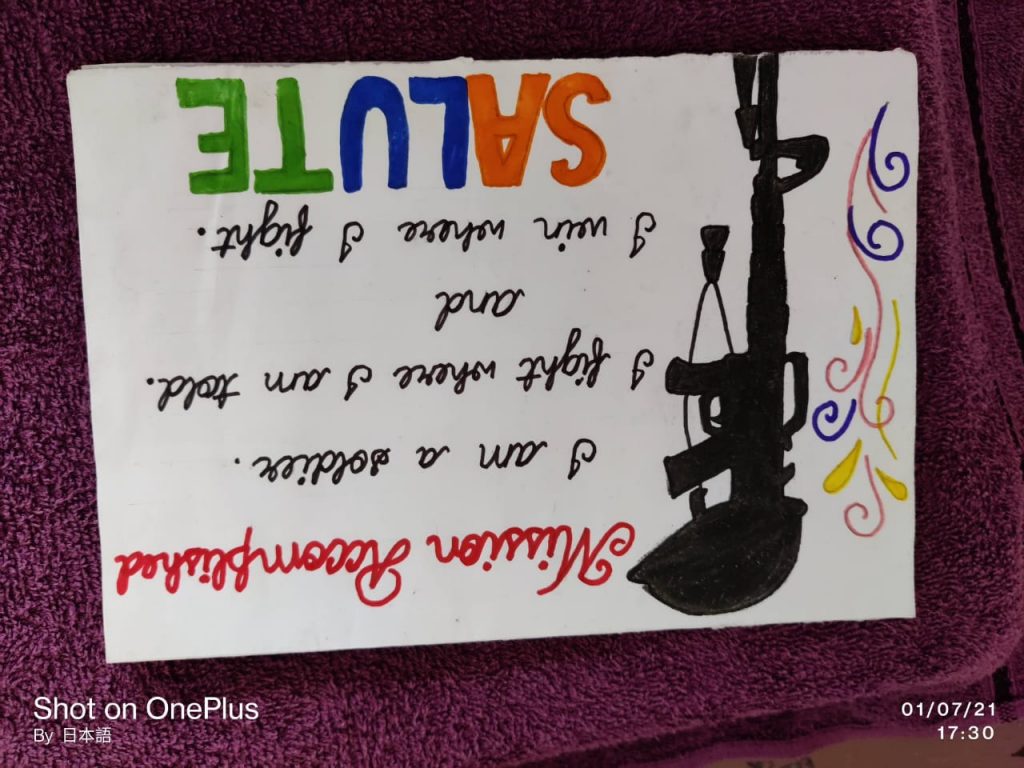 Mission Accomplished
I am a soldier.
I fight where I am told.
and
I win where I fight.
SALUTE
Shot on OnePlus
By 日本語
01/07/21
17:30